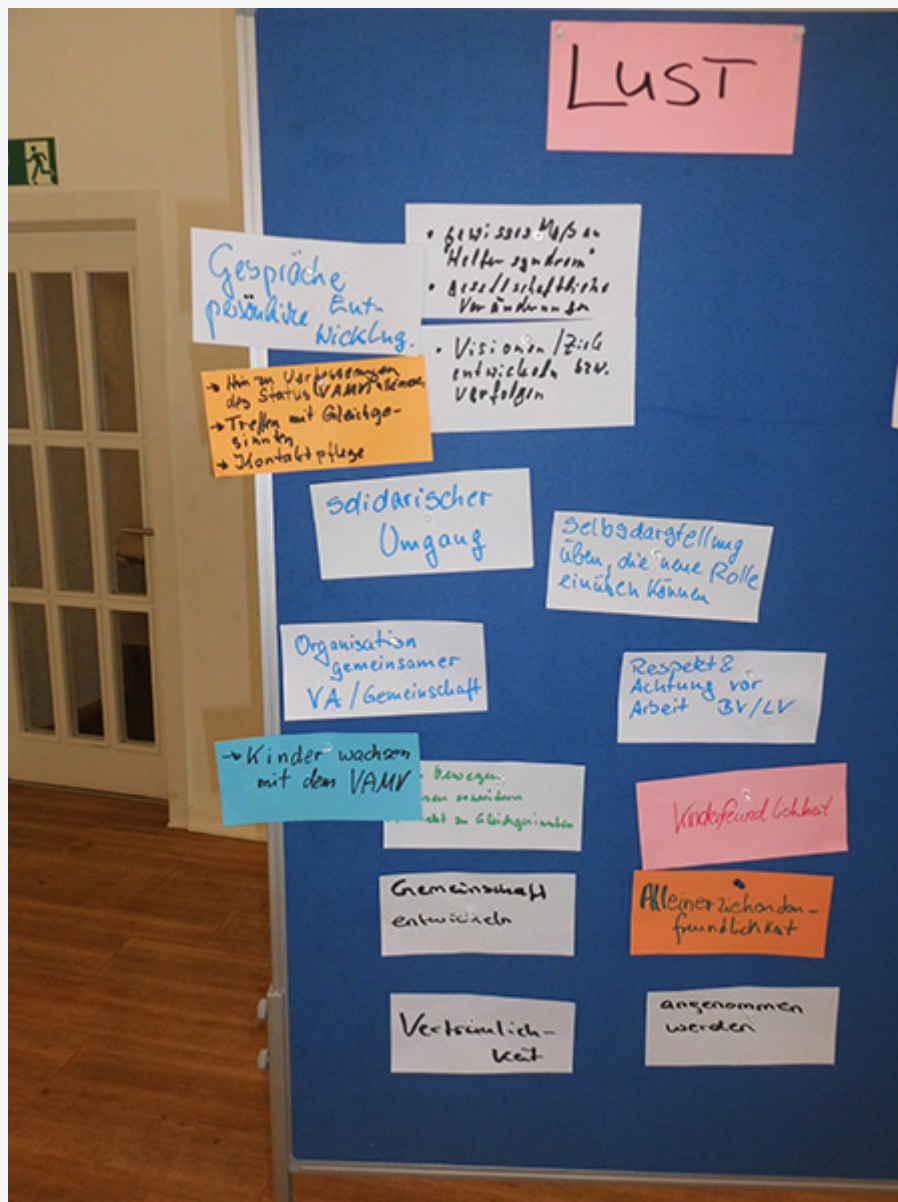 LUST
• gewisses Maß an
"Helfersyndrom"
• gesellschaftliche
Veränderungen
Gespräche
persönliche Ent-
wicklug.
• Visionen/Ziele
entwickeln bzw.
verfolgen
→ Hin zu Verbesserungen
des Status VAMV
→ Treffen mit Gleichge-
sinnten
→ Kontaktpflege
solidarischer
Umgang
Selbsdarstellung
üben, die neue Rolle
einüben können
Organisation
gemeinsamer
VA/Gemeinschaft
Respekt &
Achtung vor
Arbeit BV/LV
→ Kinder wachsen
mit dem VAMV
bewegen
erweitern
zu Gleichgesinnten
Kinderfeundlichkeit
Gemeinschaft
entwickeln
Alleinerziehenden-
freundlichkeit
Vertraulich-
keit
angenommen
werden